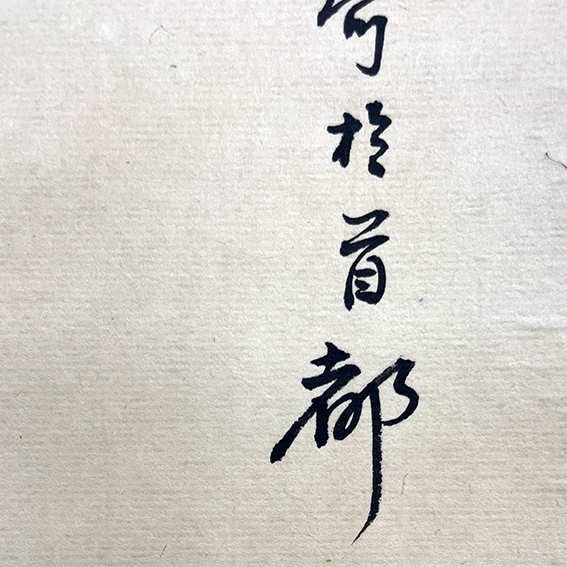 於首都